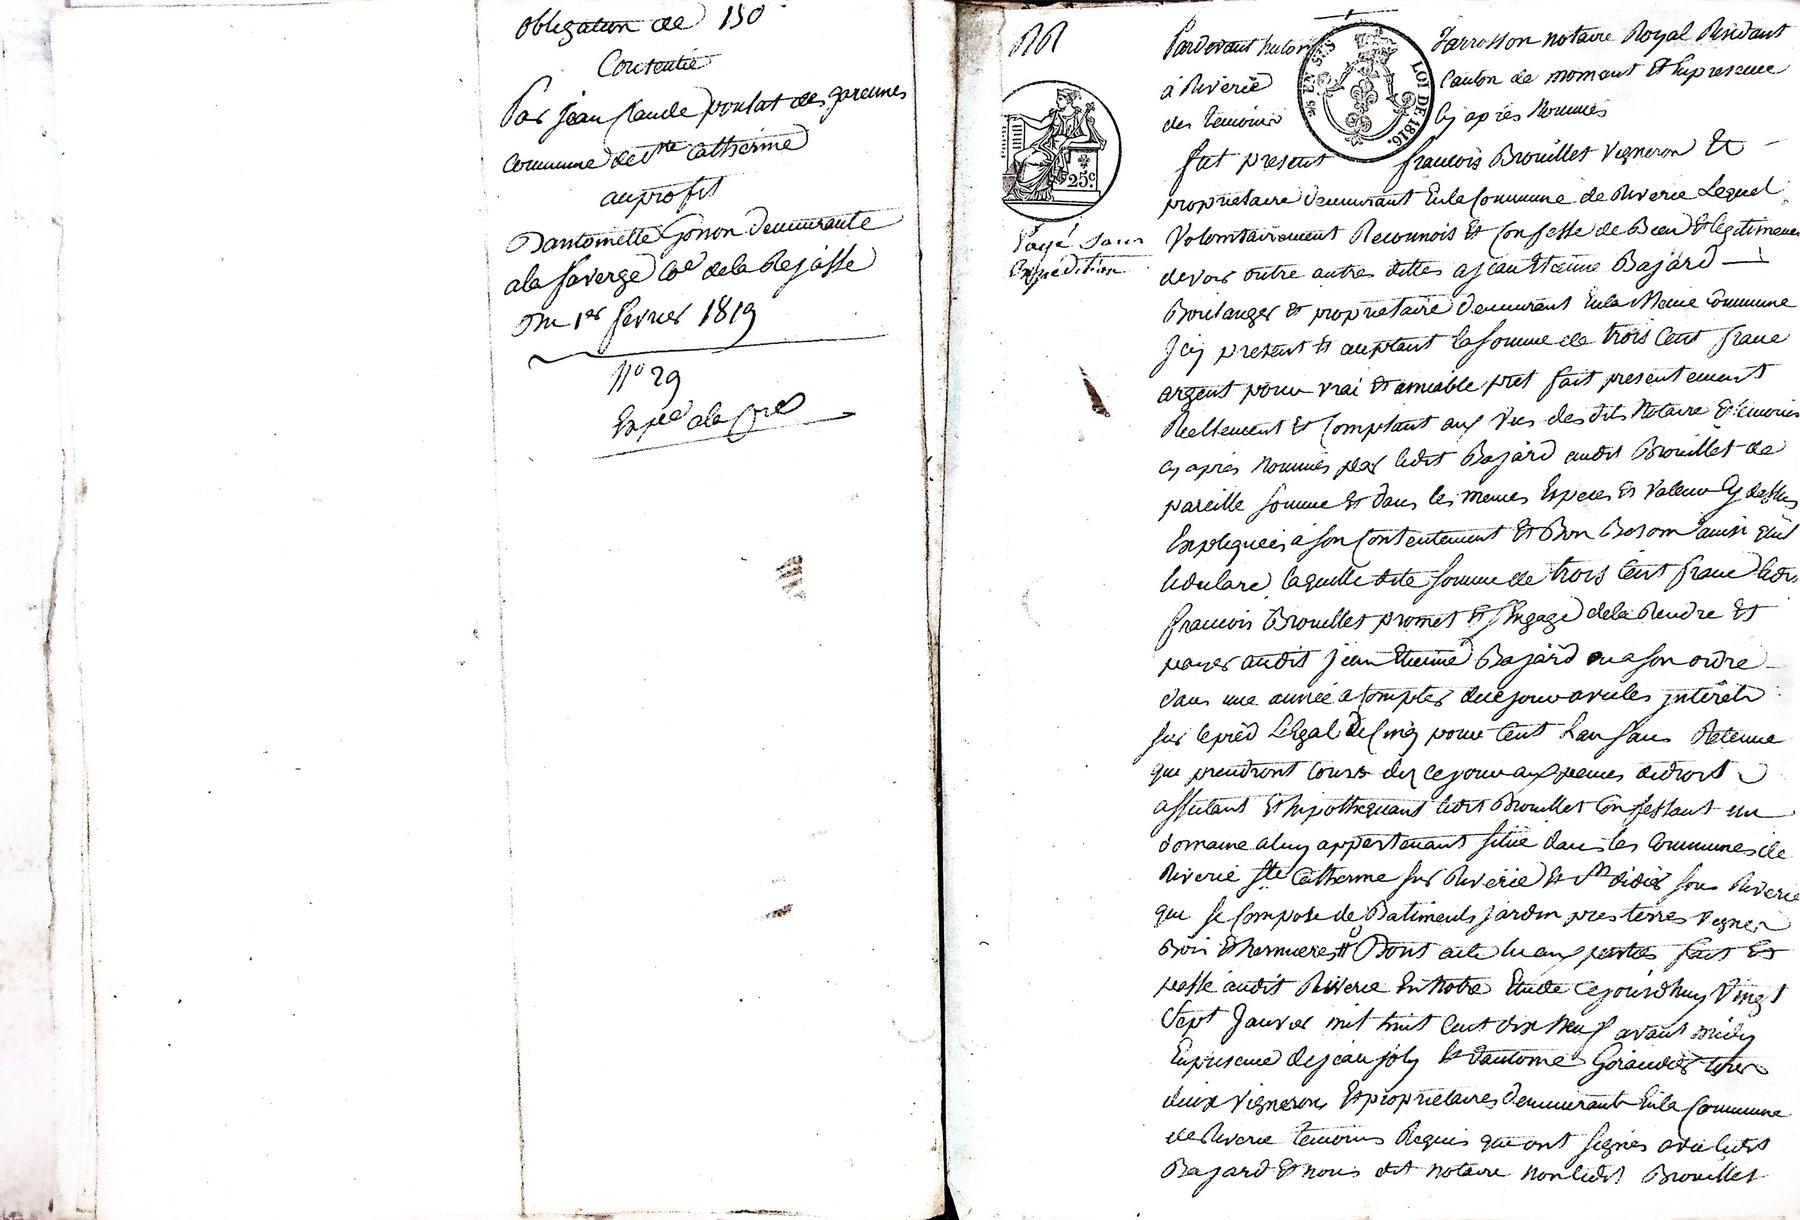 obligation de 150
Consentie
Par jean Claude poulat des garennes
commune de Ste Catherine
au profit
D'antoinette Gonon demeurante
a la faverge Coe de la Rejasse
Du 1er fevrier 1819
No 29
Expee a la Cre
Pardevant Tarrosson notaire Royal Residant
à Riverie Canton de mornant Et En presence
des temoins Cy après Nommés
fut present francois Brouillet Vigneron Et
propriétaire demeurant En la Commune de Riverie Lequel
Volontairement Reconnois Et Confesse de Bien Et legitimement
devoir outre autres dittes a jean Etienne Bajard
Boulanger Et proprietaire demeurant En la Meme Commune
Jcy present Et acceptant la somme de trois Cent franc
argent pour vrai Et amiable pret fait presentement
Reellement Et Comptant aux Vues des dits Notaire Et temoins
cy après Nommés par ledit Bajard audit Brouillet de
pareille somme Et dans les memes Especes Et Valeur Cy dessus
Expliquées a son Contentement Et Bon ainsi quil
le dulare laquelle dite somme de trois Cent franc ledit
francois Brouillet promet Et s'Engage de la Rendre Et
payer audit jean Etienne Bajard ou a son ordre
dans une année a Compter de ce jour avec les interets
sur le pied Legal de Cinq pour Cent L'an sans Retenue
qui prendront Cours des ce jour aux peines de droit
affectant Et hipothequant ledit Brouillet Confessant un
domaine a luy appartenant situé dans les Communes de
Riverie Ste Catherine sur Riverie Et St didier sous Riverie
qui se Compose de Batiments jardin pres terres vignes
Bois Et hermieres Dont acte lu aux parties fait Et
passé audit Riverie En Notre Etude Cejourd'huy Vingt
Sept Janvier mil huit Cent dix Neuf avant midy
En presence de jean joly Et d'antoine Goirandier tous
deux Vignerons Et proprietaires demeurants En la Commune
de Riverie temoins Requis qui ont signés avec ledit
Bajard Et nous dit notaire non ledit Brouillet
25c.
EN SUS
LOI DE 1816.
Payé Sans
Expédition